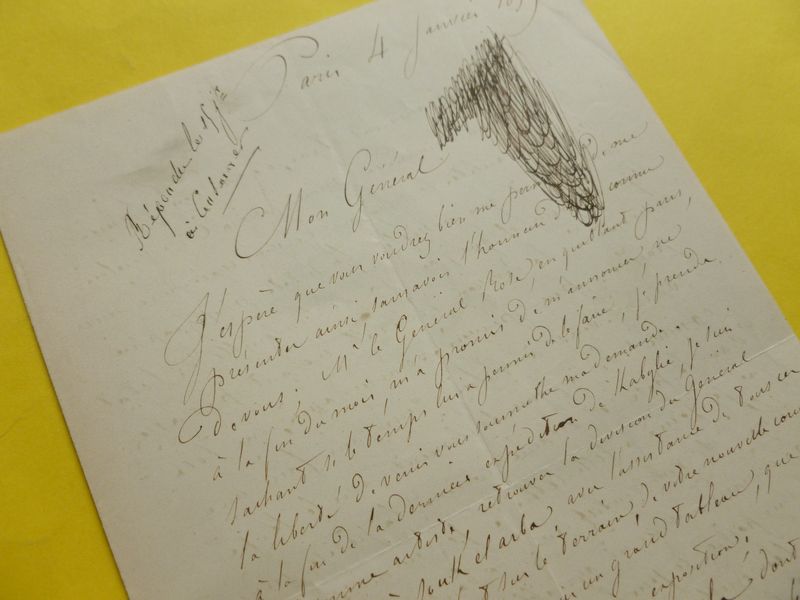 Paris 4 Janvier
Répondu le
à
Mon Général
J'espère que vous voudrez bien me permettre de me
présenter ainsi, sans avoir l'honneur d'être connu
de vous. Mr le Général Rose, en quittant paris,
à la fin du mois, m'a promis de m'annoncer ne
sachant si le temps lui a permis de le faire, je prends
la liberté de venir vous soumettre ma demande.
à la fin de la dernière expédition de Kabylie, je suis
comme artiste, retrouver la division du Général
Souk el arba avec l'assistance de tous ces
sur le terrain de votre nouvelle
un grand tableau, que
exposition.
dont